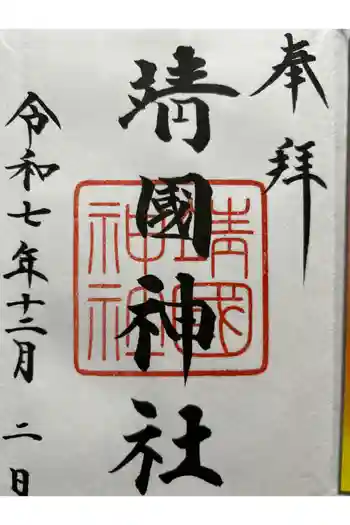 奉拝
靖國神社
靖國
神社
令和七年十二月二日